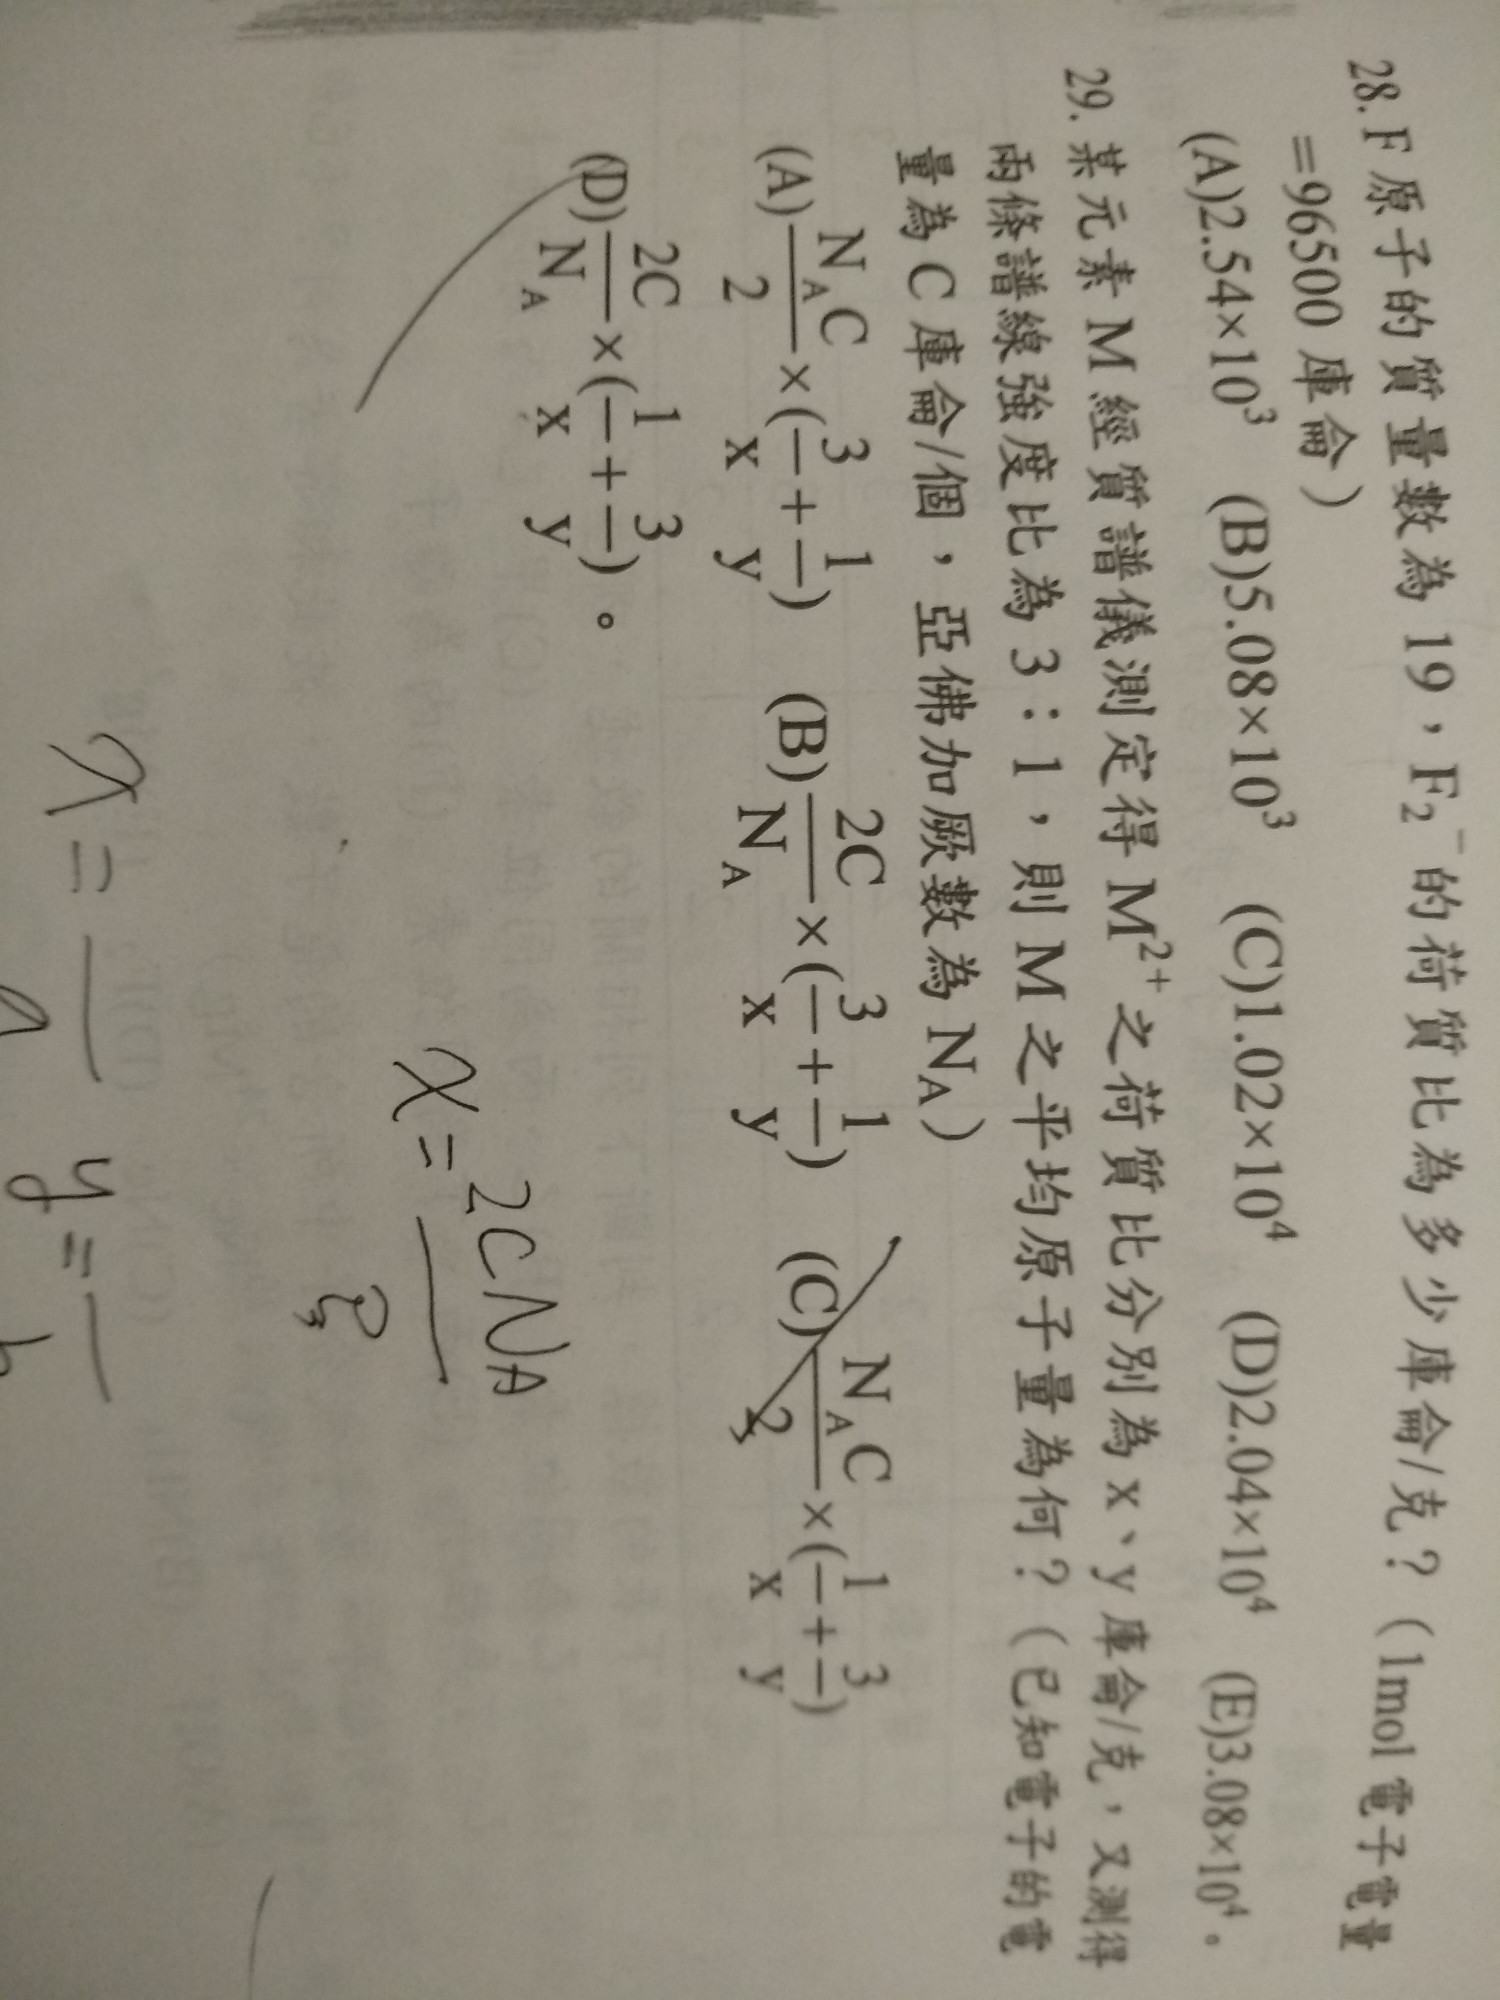 28. F 原子的質量數為 19，F₂⁻ 的荷質比為多少庫侖/克？（1mol 電子電量
=96500 庫侖）
(A)2.54×10³ (B)5.08×10³ (C)1.02×10⁴ (D)2.04×10⁴ (E)3.08×10⁴。
29. 某元素 M 經質譜儀測定得 M²⁺ 之荷質比分別為 x、y 庫侖/克，又測得
兩條譜線強度比為 3：1，則 M 之平均原子量為何？（已知電子的電
量為 C 庫侖/個，亞佛加厥數為 N_A）
(A) N_A C/2 ×(3/x + 1/y) (B) 2C/N_A ×(3/x + 1/y) (C) N_A C/2 ×(1/x + 3/y)
(D) 2C/N_A ×(1/x + 3/y)。
x = 2CN_A/
x = y =